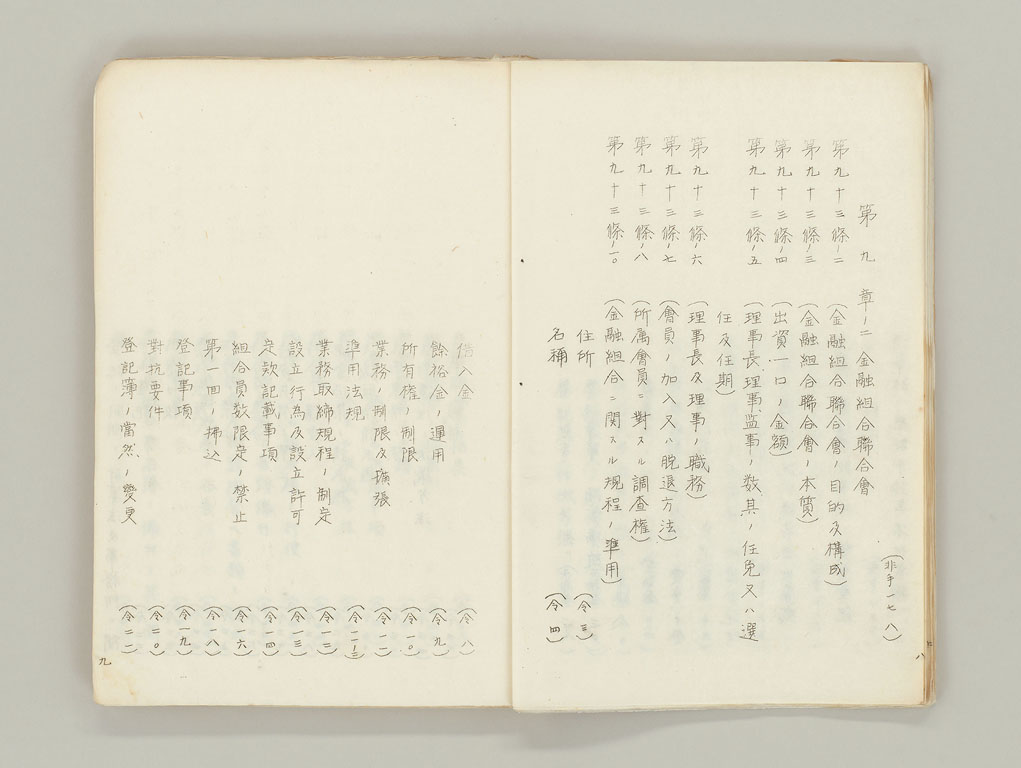 第九章ノ二 金融組合聯合會
(非手一七八)
第九十三條ノ二 (金融組合聯合會ノ目的及構成)
第九十三條ノ三 (金融組合聯合會ノ本質)
第九十三條ノ四 (出資一口ノ金額)
第九十三條ノ五 (理事長理事監事ノ数其ノ任免又ハ選
任及任期)
第九十三條ノ六 (理事長及理事ノ職務)
第九十三條ノ七 (會員ノ加入又ハ脱退方法)
第九十三條ノ八 (所属會員ニ對スル調査權)
第九十三條ノ一〇 (金融組合ニ関スル規程ノ準用)
住所 (令三)
名稱 (令四)
八
借入金 (令八)
餘裕金ノ運用 (令九)
所有權ノ制限 (令一〇)
業務ノ制限及擴張 (令一一)
準用法規 (令一一ノ三)
業務取締規程ノ制定 (令一二)
設立行為及設立許可 (令一三)
定款記載事項 (令一四)
組合員数限定ノ禁止 (令一六)
第一回ノ拂込 (令一八)
登記事項 (令一九)
對抗要件 (令二〇)
登記簿ノ當然ノ變更 (令二二)
九